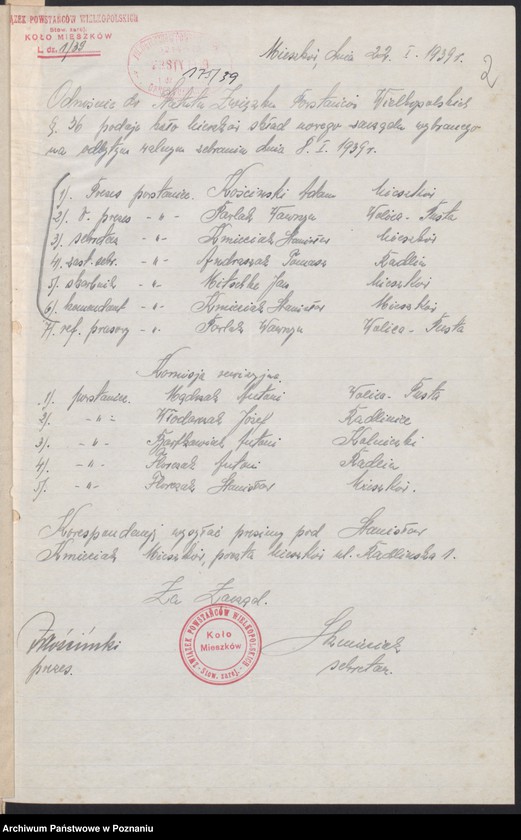 ZWIĄZEK POWSTAŃCÓW WIELKOPOLSKICH
Stow. zarej.
KOŁO MIESZKÓW
L. dz. 1/39
Mieszków, dnia 22. I. 1939 r.
2
175/39
Odnośnie do Statutu Związku Powstańców Wielkopolskich
§. 36 podaje koło Mieszków skład nowego zarządu wybranego
na odbytym walnym zebraniu dnia 8. I. 1939 r.
1/. Prezes powstaniec. Kościński Adam Mieszków
2/. v. prezes -„- Parlak Wawrzyn Wolica-Pusta
3/. sekretarz -„- Kmieciak Stanisław Mieszków
4/. zast. sekr. -„- Andrzeszak Tomasz Radlin
5/. skarbnik -„- Mitschke Jan Mieszków
6/. komendant -„- Kmieciak Stanisław Mieszków
7/. ref. prasowy -„- Parlak Wawrzyn Wolica-Pusta
Komisja rewizyjna.
1/. powstaniec. Antoni Wolica-Pusta
2/. -„- Włodarczak Józef Radliniec
3/. -„- Bartkowiak Antoni
4/. -„- Florczak Antoni Radlin
5/. -„- Florczak Stanisław Mieszków.
Korespondencję wysyłać prosimy pod Stanisław
Kmieciak Mieszków, poczta Mieszków ul. Radlińska 1.
Za Zarząd.
Kościński
prezes.
ZWIĄZEK POWSTAŃCÓW WIELKOPOLSKICH
Koło
Mieszków
Stow. zarej.
Kmieciak
sekretarz.
Archiwum Państwowe w Poznaniu